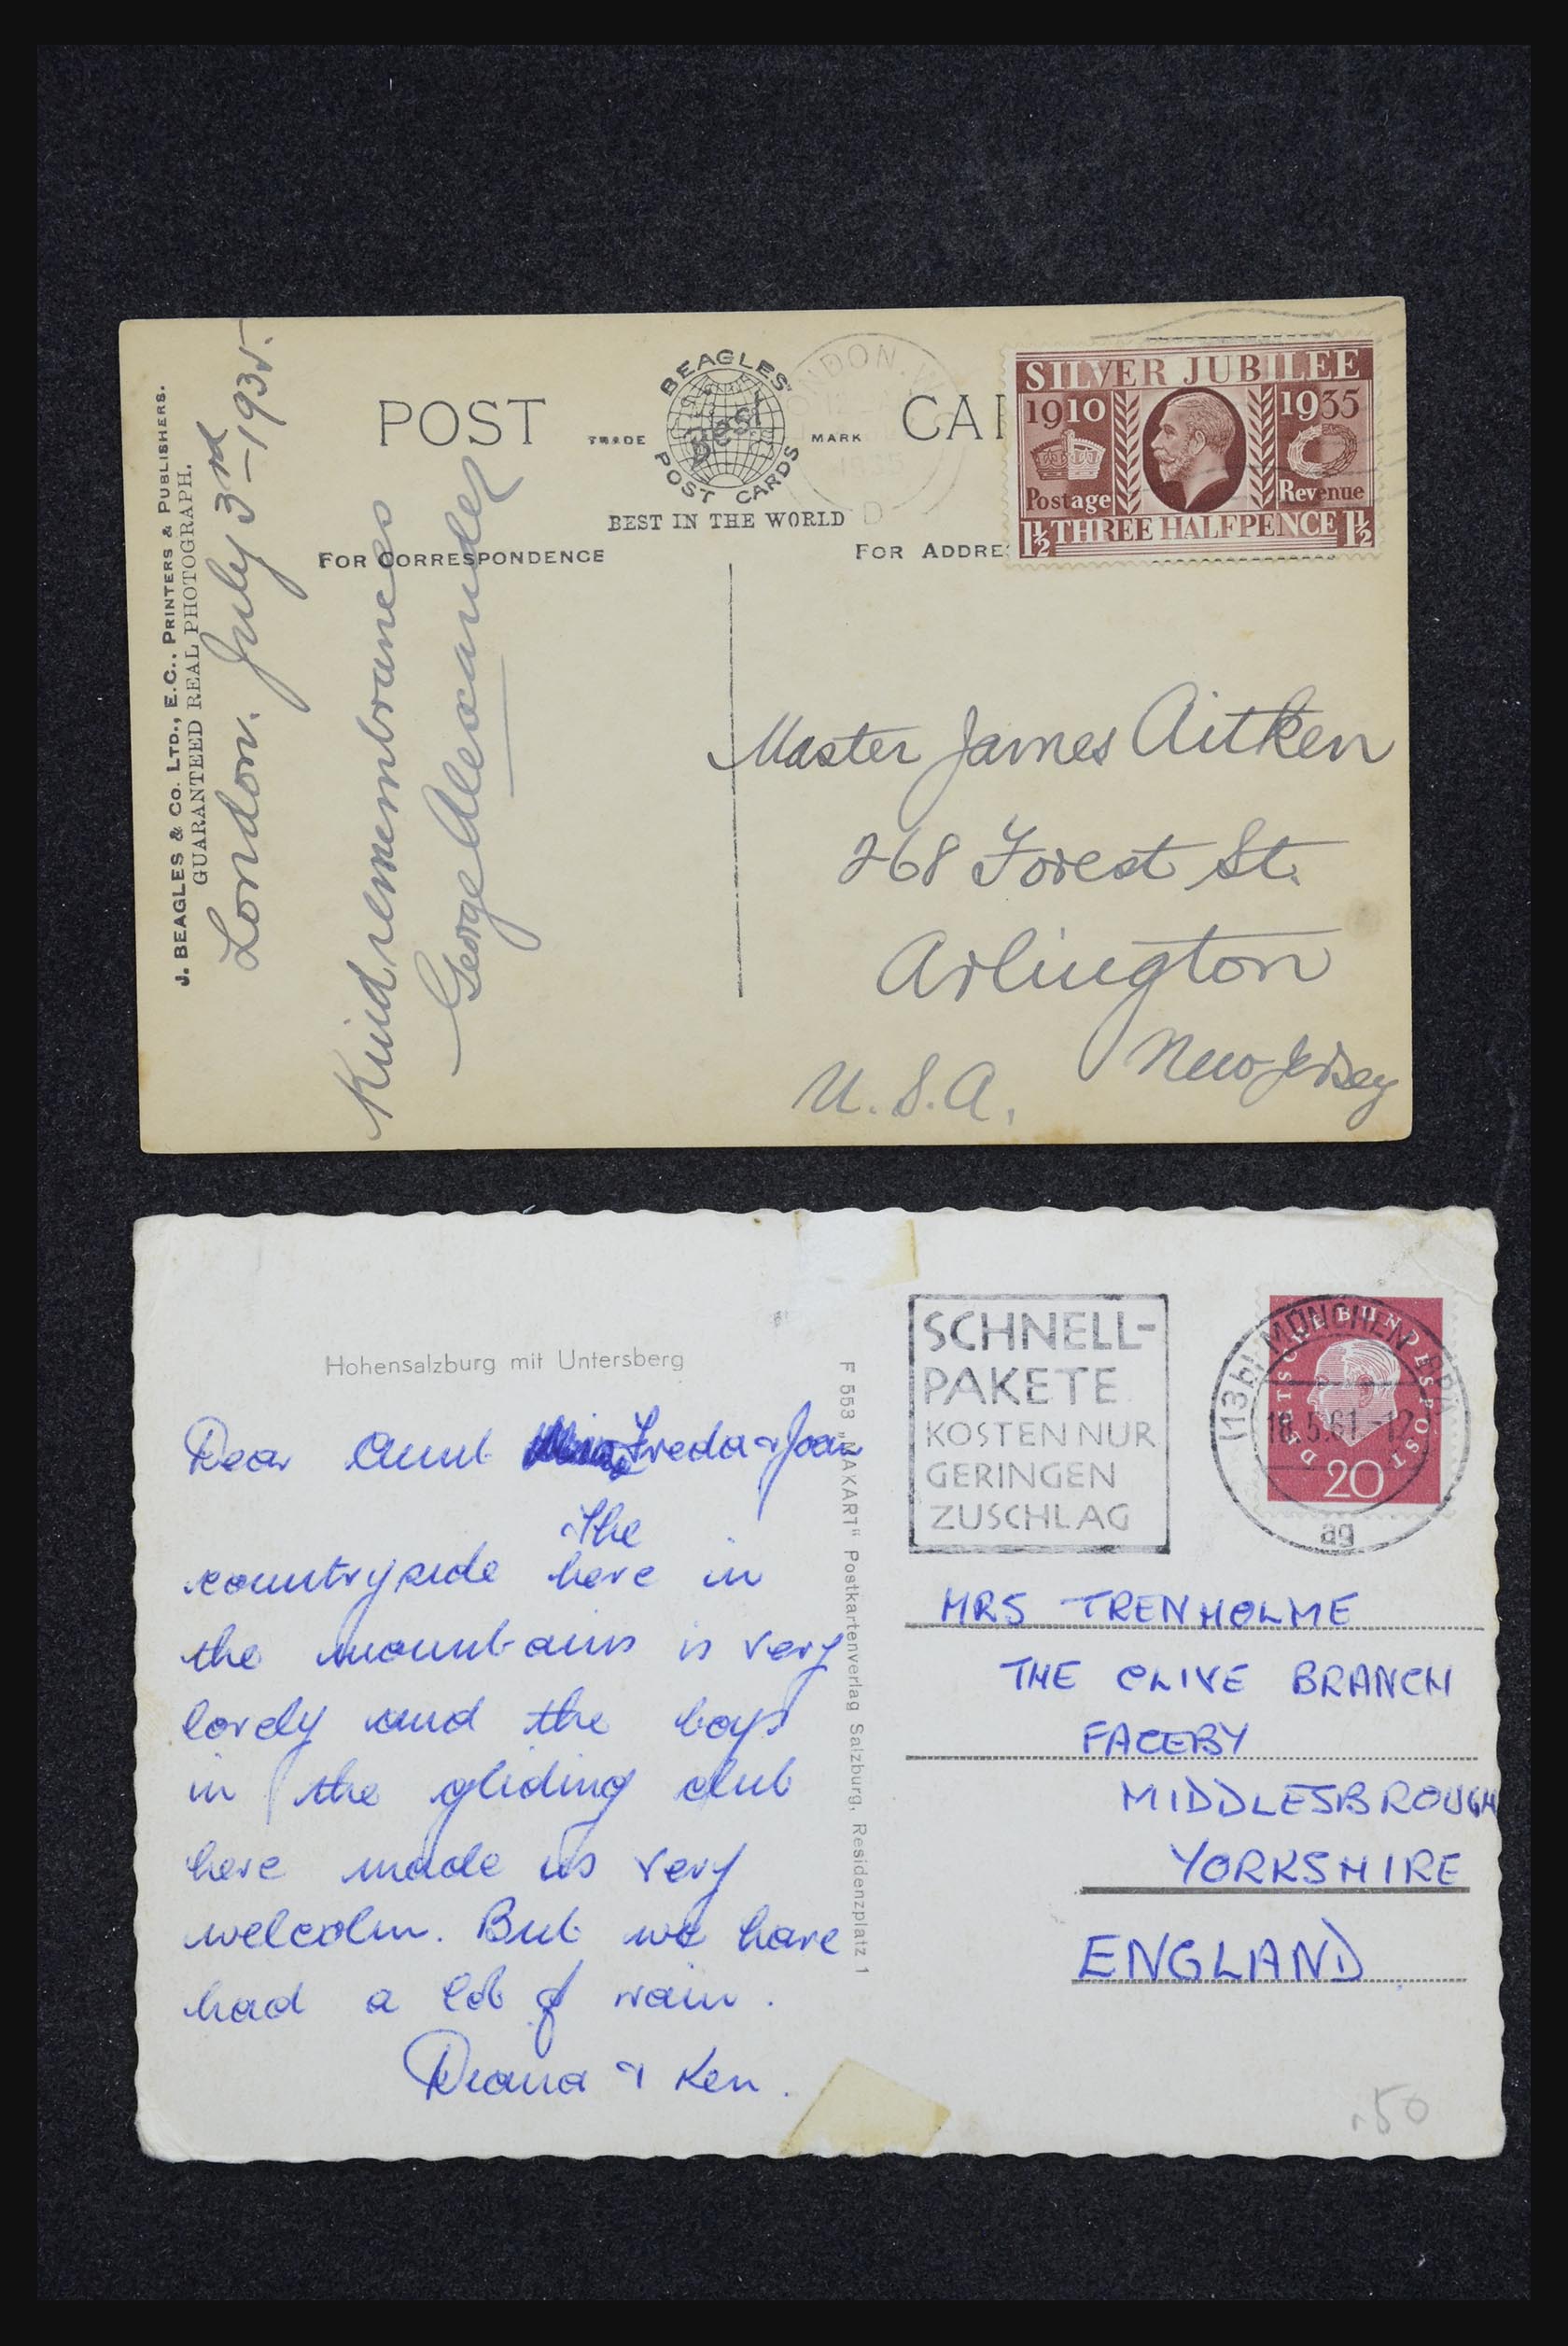 J. BEAGLES & Co. LTD., E.C., PRINTERS & PUBLISHERS.
GUARANTEED REAL PHOTOGRAPH.
London. July 3rd – 1935.
Kind remembrances
George Alexander
POST CAR
TRADE MARK
BEAGLES'
Best
POST CARDS
BEST IN THE WORLD
FOR CORRESPONDENCE
FOR ADDRE
LONDON. W.
SILVER JUBILEE
1910 1935
Postage Revenue
1½ THREE HALFPENCE 1½
Master James Aitken
268 Forest St.
Arlington
New Jersey
U. S. A.
Hohensalzburg mit Untersberg
Dear Aunt Freda & Joan
The
countryside here in
the mountains is very
lovely and the boys
in the gliding club
here made us very
welcolm. But we have
had a lot of rain.
Deana & Ken.
F 553 „MAKART" Postkartenverlag Salzburg, Residenzplatz 1
SCHNELL-
PAKETE
KOSTEN NUR
GERINGEN
ZUSCHLAG
(13b) MÜNCHEN BPA
18.5.61.-12
ag
DEUTSCHE BUNDESPOST
20
MRS TRENHOLME
THE OLIVE BRANCH
FACEBY
MIDDLESBROUGH
YORKSHIRE
ENGLAND
.50